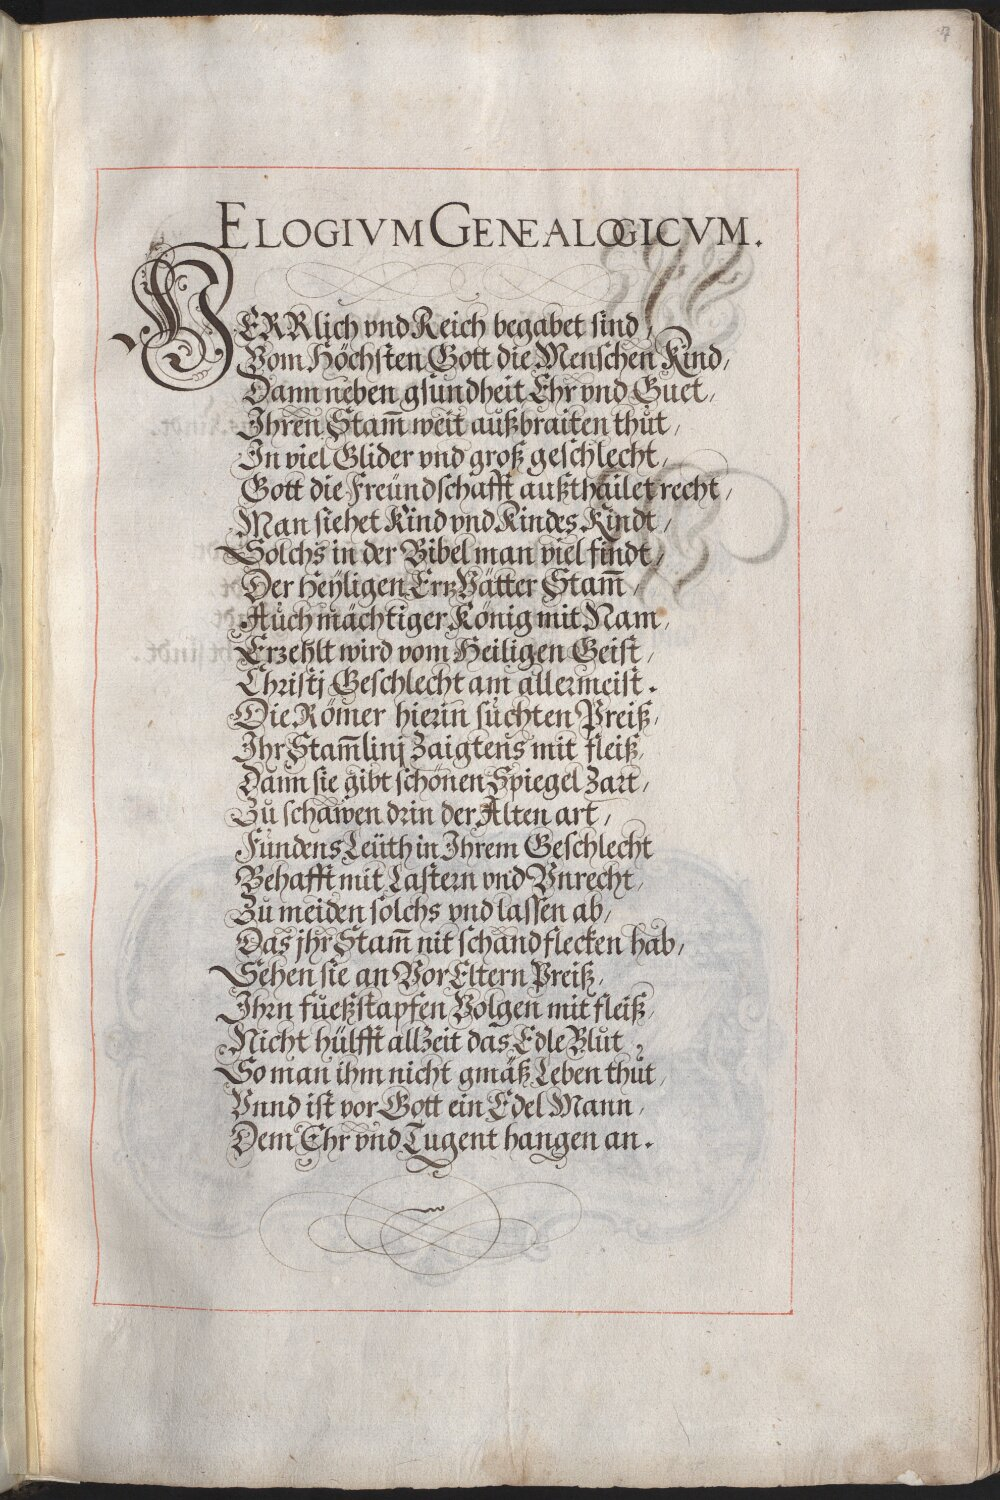 7
ELOGIVM GENEALOGICVM.
HERRlich vnd Reich begabet sind /
Vom Höchsten Gott die Menschen Kind /
Dann neben gsundheit Ehr vnd Guet /
Ihren Stam̄ weit außbraiten thůt /
In viel Glider vnd groß geschlecht /
Gott die Freündschafft außthailet recht /
Man siehet Kind vnd Kindes Kindt /
Solchs in der Bibel man viel findt /
Der Heÿligen Ertz Vätter Stam̄ /
Aůch mächtiger König mit Nam /
Erzehlt wird vom Heiligen Geist /
Christj Geschlecht am allermeist.
Die Römer hierin sůchten Preiß /
Ihr Stam̄linj Zaigtens mit fleiß /
Dann sie gibt schönen Spiegel Zart /
Zů schawen drin der Alten art /
Fůndens Leüth in Ihrem Geschlecht
Behafft mit Lastern vnd Vnrecht /
Zů meiden solchs vnd lassen ab /
Das jhr Stam̄ nit schandflecken hab /
Sehen sie an Vor Eltern Preiß /
Ihrn fueßstapfen Volgen mit fleiß /
Nicht hülfft allZeit das Edle Blůt /
So man ihm nicht gmäß Leben thůt /
Vnnd ist vor Gott ein Edel Mann /
Dem Ehr vnd Tugent hangen an.